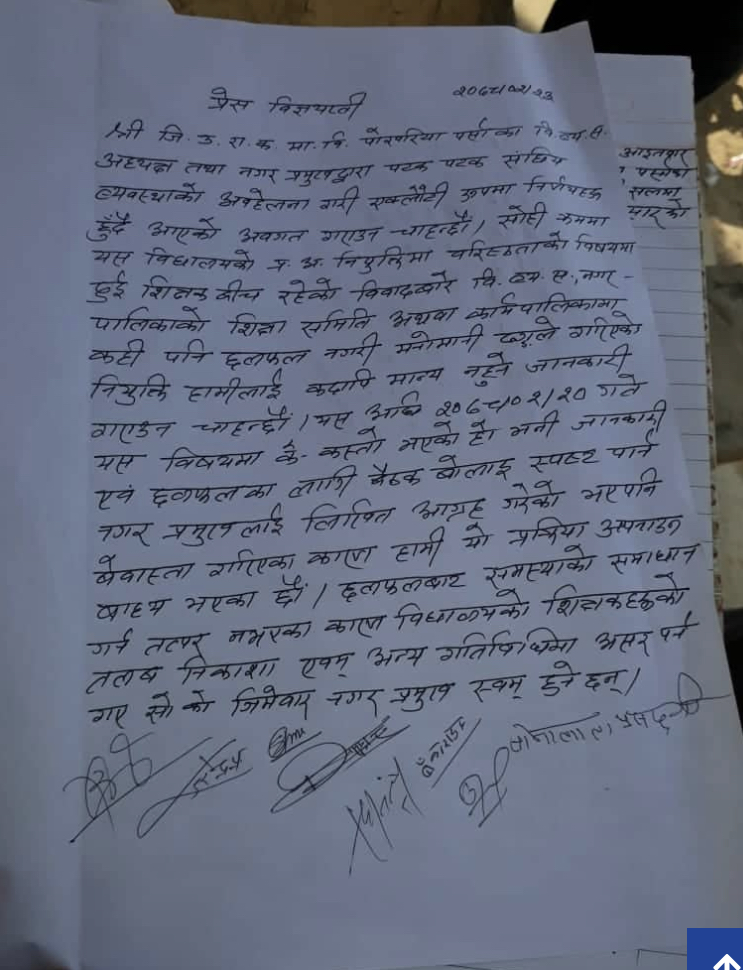 प्रेस विज्ञप्ती
२०७८/०२/२३
श्री जि. उ. रा. क. मा. वि. पोखरिया पर्साका वि. व्य. स.
अध्यक्ष तथा नगर प्रमुखद्वारा पटक पटक संघिय
व्यवस्थाको अवहेलना गरी एक्लौटी रूपमा निर्णयहरू
हुँदै आएको अवगत गराउन चाहन्छौं। सोही क्रममा
यस विद्यालयको प्र. अ. नियुक्तिमा वरिष्ठताको विषयमा
दुई शिक्षक बीच रहेको विवादबारे वि. व्य. स., नगर-
पालिकाको शिक्षा समिति अथवा कार्यपालिकामा
कही पनि छलफल नगरी मनोमानी ढंगले गरिएको
नियुक्ति हामीलाई कदापि मान्य नहुने जानकारी
गराउन चाहन्छौं। यस अघि २०७८/०२/२० गते
यस विषयमा के-कस्तो भएको हो भनी जानकारी
एवं छलफलका लागि बैठक बोलाइ स्पष्ट पार्न
नगर प्रमुखलाई लिखित आग्रह गरेको भएपनि
बेवास्ता गरिएका कारण हामी यो प्रक्रिया अपनाउन
बाध्य भएका छौं। छलफलबाट समस्याको समाधान
गर्न तत्पर नभएका कारण विद्यालयको शिक्षकहरूको
तलब निकाशा एवम् अन्य गतिविधिमा असर पर्न
गए सो को जिमेवार नगर प्रमुख स्वम् हुने छन्।
आइतबार